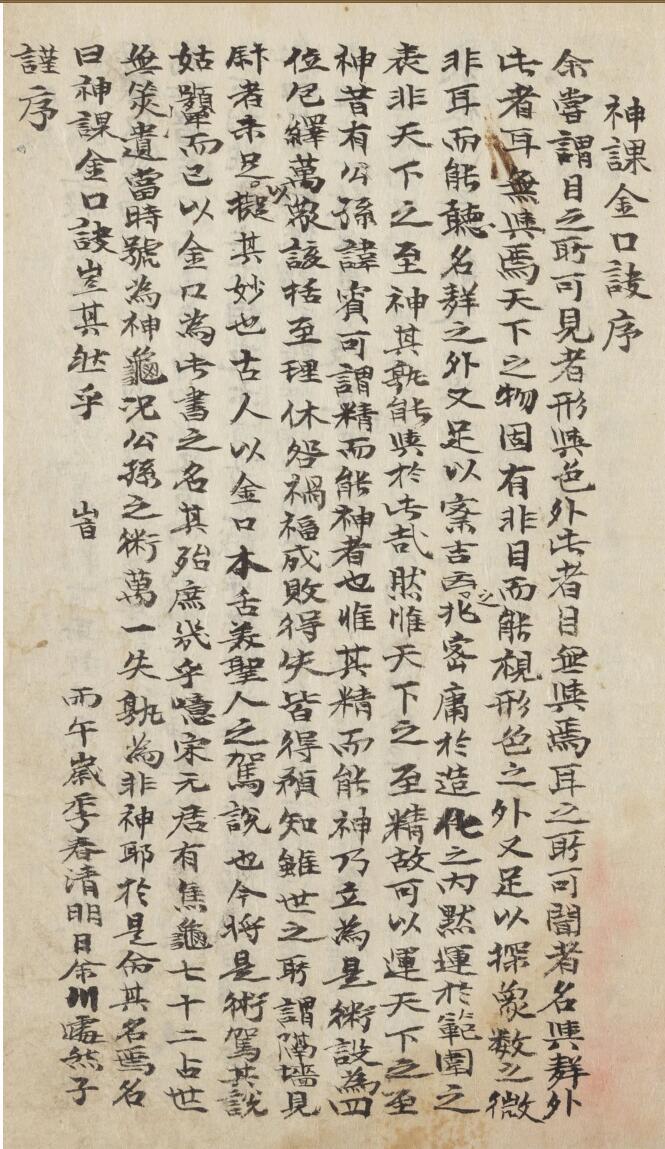 神課金口訣序
余嘗謂目之所可見者形與色外此者目無與焉耳之所可聞者名與群外
此者耳無與焉天下之物固有非目而能視形色之外又足以探象数之微
非耳而能聽名群之外又足以察吉凶之兆密庸於造化之内黙運於範圍之
表非天下之至神其孰能與於此哉然惟天下之至精故可以運天下之至
神昔有公孫諱賓可謂精而能神者也惟其精而能神乃立為是術設為四
位包繹萬衆該括至理休咎禍福成敗得失皆得預知雖世之所謂隔墻見
肝者未足以擬其妙也古人以金口木舌羙聖人之駕說也今將是術駕其說
姑顰而已以金口為此書之名其殆庶幾乎噫宋元君有焦龜七十二占世
無筴遺當時號為神龜况公孫之術萬一失孰為非神耶於是命其名焉名
曰神課金口訣豈其然乎 旹 丙午歲季春清明日余川 然子
謹序